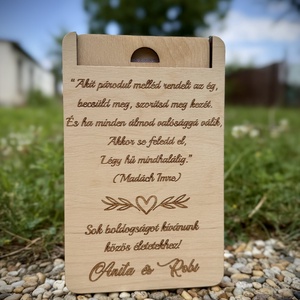 "Akit párodul melléd rendelt az ég,
becsüld meg, szorítsd meg kezét.
És ha minden álmod valósággá válik,
Akkor se feledd el,
Légy hű mindhalálig."
(Madách Imre)
Sok boldogságot kívánunk
közös életetekhez!
Anita és Robi